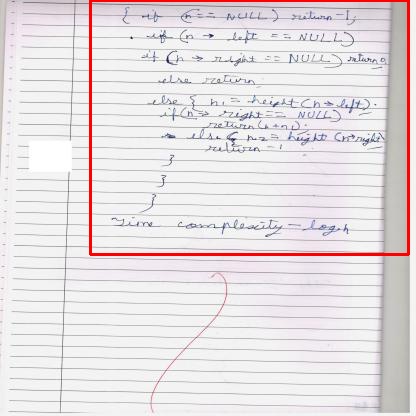 { if (n == NULL) return -1;
if (n → left == NULL)
if (n → right == NULL) return 0
else return
else { n1 = height (n → left).
if (n → right == NULL)
return (1+n1);
else { n2 = height (n→right)
return -1
}
}
}
Time complexity - log h